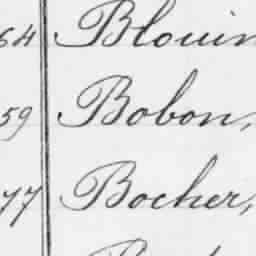 64 Blouin
59 Bobon,
77 Bocher,